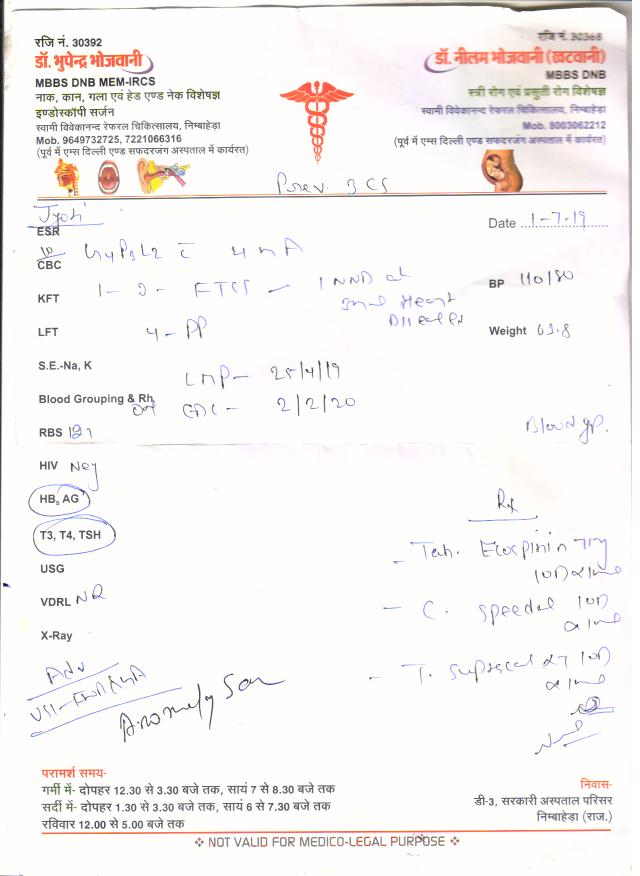 रजि नं. 30392
डॉ. भुपेन्द्र भोजवानी
MBBS DNB MEM-IRCS
नाक, कान, गला एवं हेड एण्ड नेक विशेषज्ञ
इण्डोस्कॉपी सर्जन
स्वामी विवेकानन्द रेफरल चिकित्सालय, निम्बाहेड़ा
Mob. 9649732725, 7221066316
(पूर्व में एम्स दिल्ली एण्ड सफदरजंग अस्पताल में कार्यरत)
रजि नं. 30368
डॉ. नीलम भोजवानी (खटवानी)
MBBS DNB
स्त्री रोग एवं प्रसुती रोग विशेषज्ञ
स्वामी विवेकानन्द रेफरल चिकित्सालय, निम्बाहेड़ा
Mob. 8003062212
(पूर्व में एम्स दिल्ली एण्ड सफदरजंग अस्पताल में कार्यरत)
Prev. 3 CS
Jyoti
Date 1-7-19
ESR
CBC
G4P3L2 c 4 m A
KFT
1 - 2 - FTCS - 1 NND
Heart
BP 110/80
LFT
4 - PP
Weight 63.8
S.E.-Na, K
LMP - 25/4/19
Blood Grouping & Rh
EDC - 2/2/20
RBS 121
Blood gp.
HIV Neg
HB, AG
Rx
T3, T4, TSH
- Tab. Ecosprin 75
1OD
USG
VDRL NR
- C. 1OD
X-Ray
- T. 1OD
Adv
Anomaly Scan
परामर्श समय-
गर्मी में- दोपहर 12.30 से 3.30 बजे तक, सायं 7 से 8.30 बजे तक
सर्दी में- दोपहर 1.30 से 3.30 बजे तक, सायं 6 से 7.30 बजे तक
रविवार 12.00 से 5.00 बजे तक
निवास-
डी-3, सरकारी अस्पताल परिसर
निम्बाहेड़ा (राज.)
NOT VALID FOR MEDICO-LEGAL PURPOSE